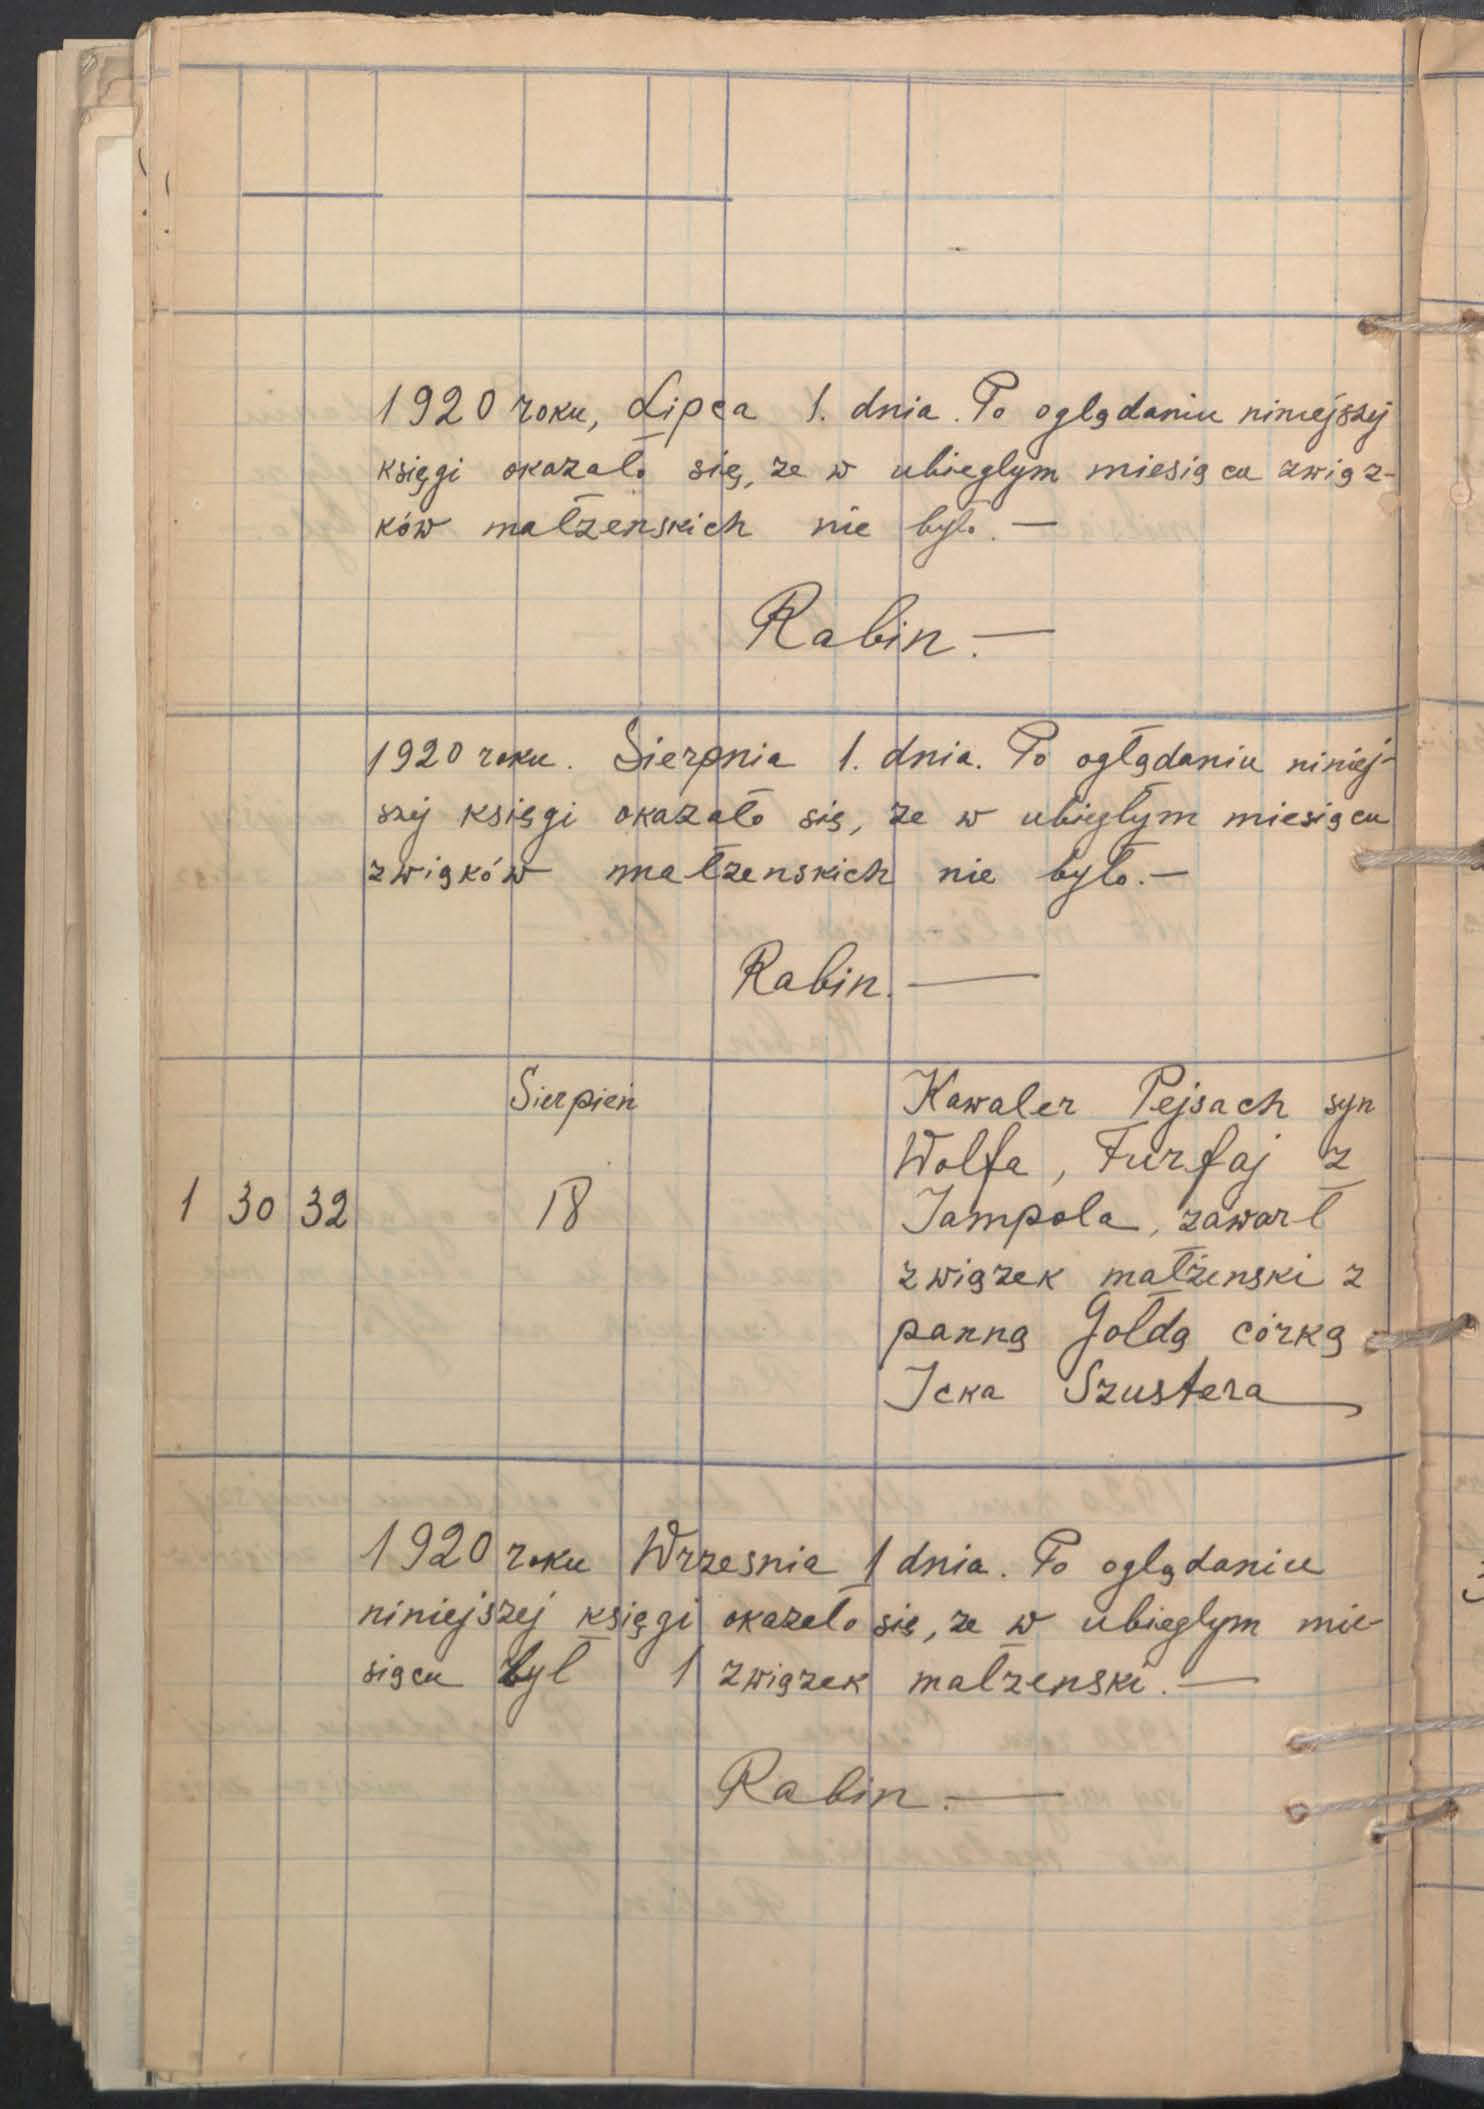 1920 roku, Lipca 1. dnia. Po oglądaniu niniejszej
księgi okazało się, ze w ubieglym miesiącu związ-
ków małzenskich nie było. —
Rabin. —
1920 roku. Sierpnia 1. dnia. Po oglądaniu niniej-
szej księgi okazało się, ze w ubiegłym miesiącu
zwiąków małzenskich nie było. —
Rabin. —
Sierpień
Kawaler Pejsach syn
Wolfa, Furfaj z
1 30 32 18 Jampola, zawarł
związek małżenski z
panną Gołdą córką
Icka Szustera
1920 roku Wrzesnia 1 dnia. Po oglądaniu
niniejszej księgi okazało się, ze w ubieglym mie-
siącu był 1 związek małzenski. —
Rabin. —